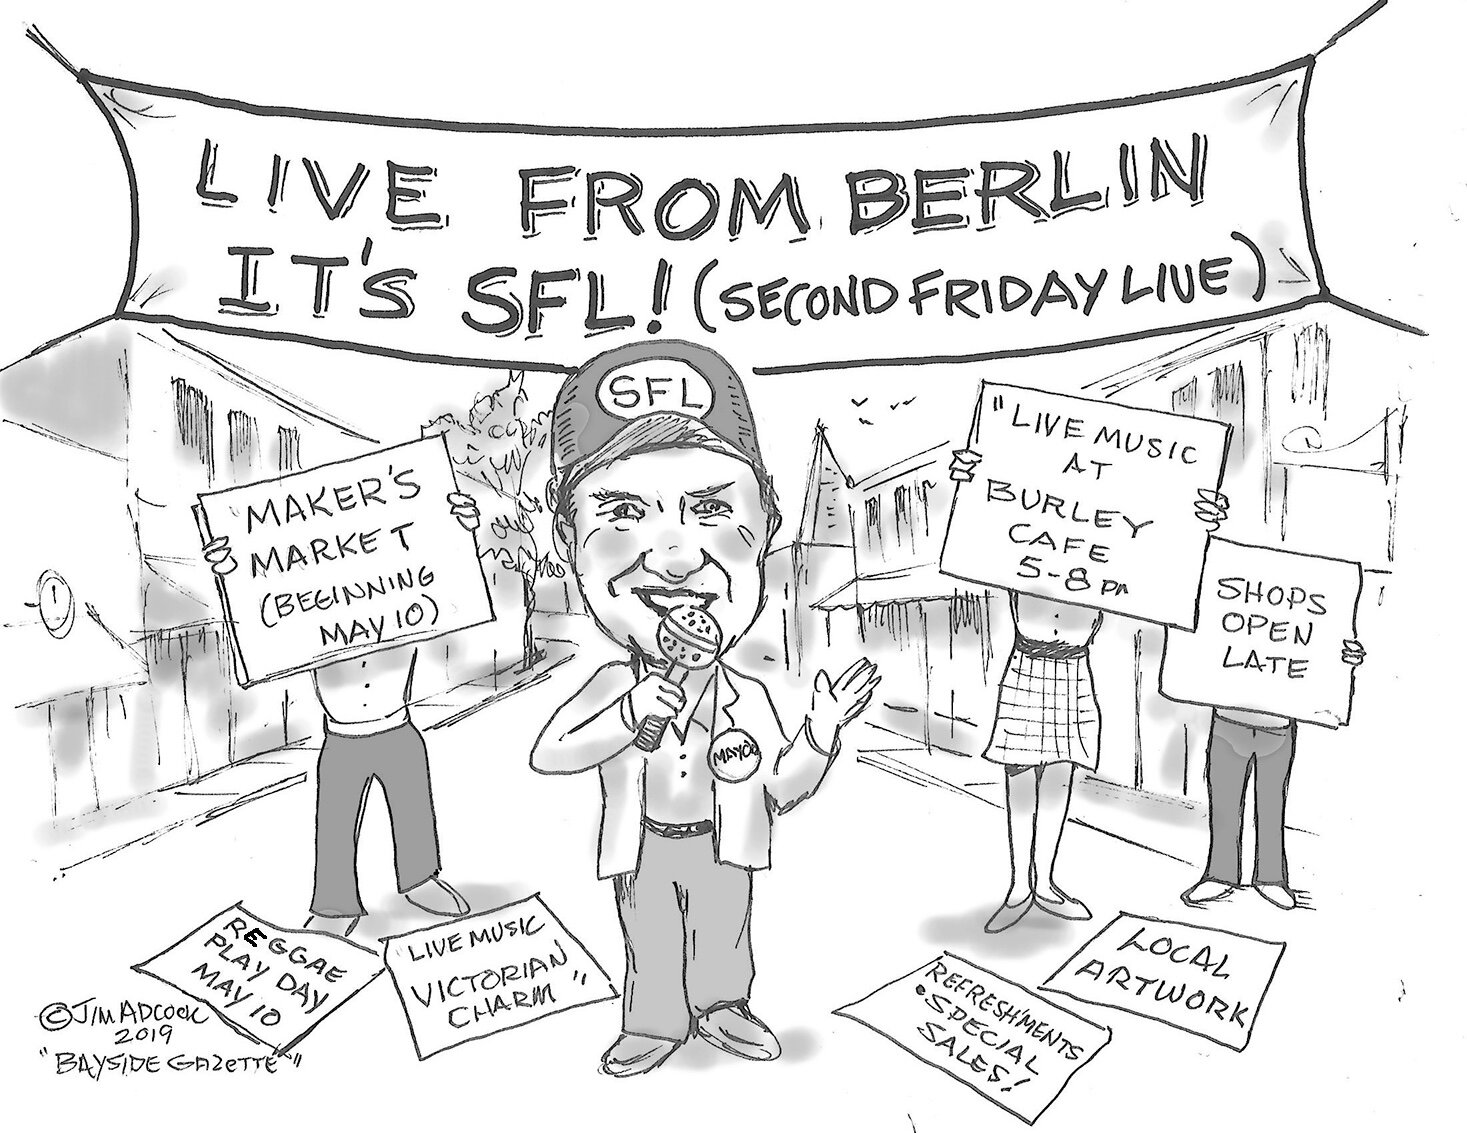 LIVE FROM BERLIN
IT'S SFL! (SECOND FRIDAY LIVE)
SFL
"MAKER'S
MARKET
(BEGINNING
MAY 10)
"LIVE MUSIC
AT
BURLEY
CAFE
5-8 PM
SHOPS
OPEN
LATE
MAYOR
REGGAE
PLAY DAY
MAY 10
"LIVE MUSIC
VICTORIAN
CHARM"
REFRESHMENTS
•SPECIAL
SALES!
LOCAL
ARTWORK
©JIM ADCOCK
2019
"BAYSIDE GAZETTE"